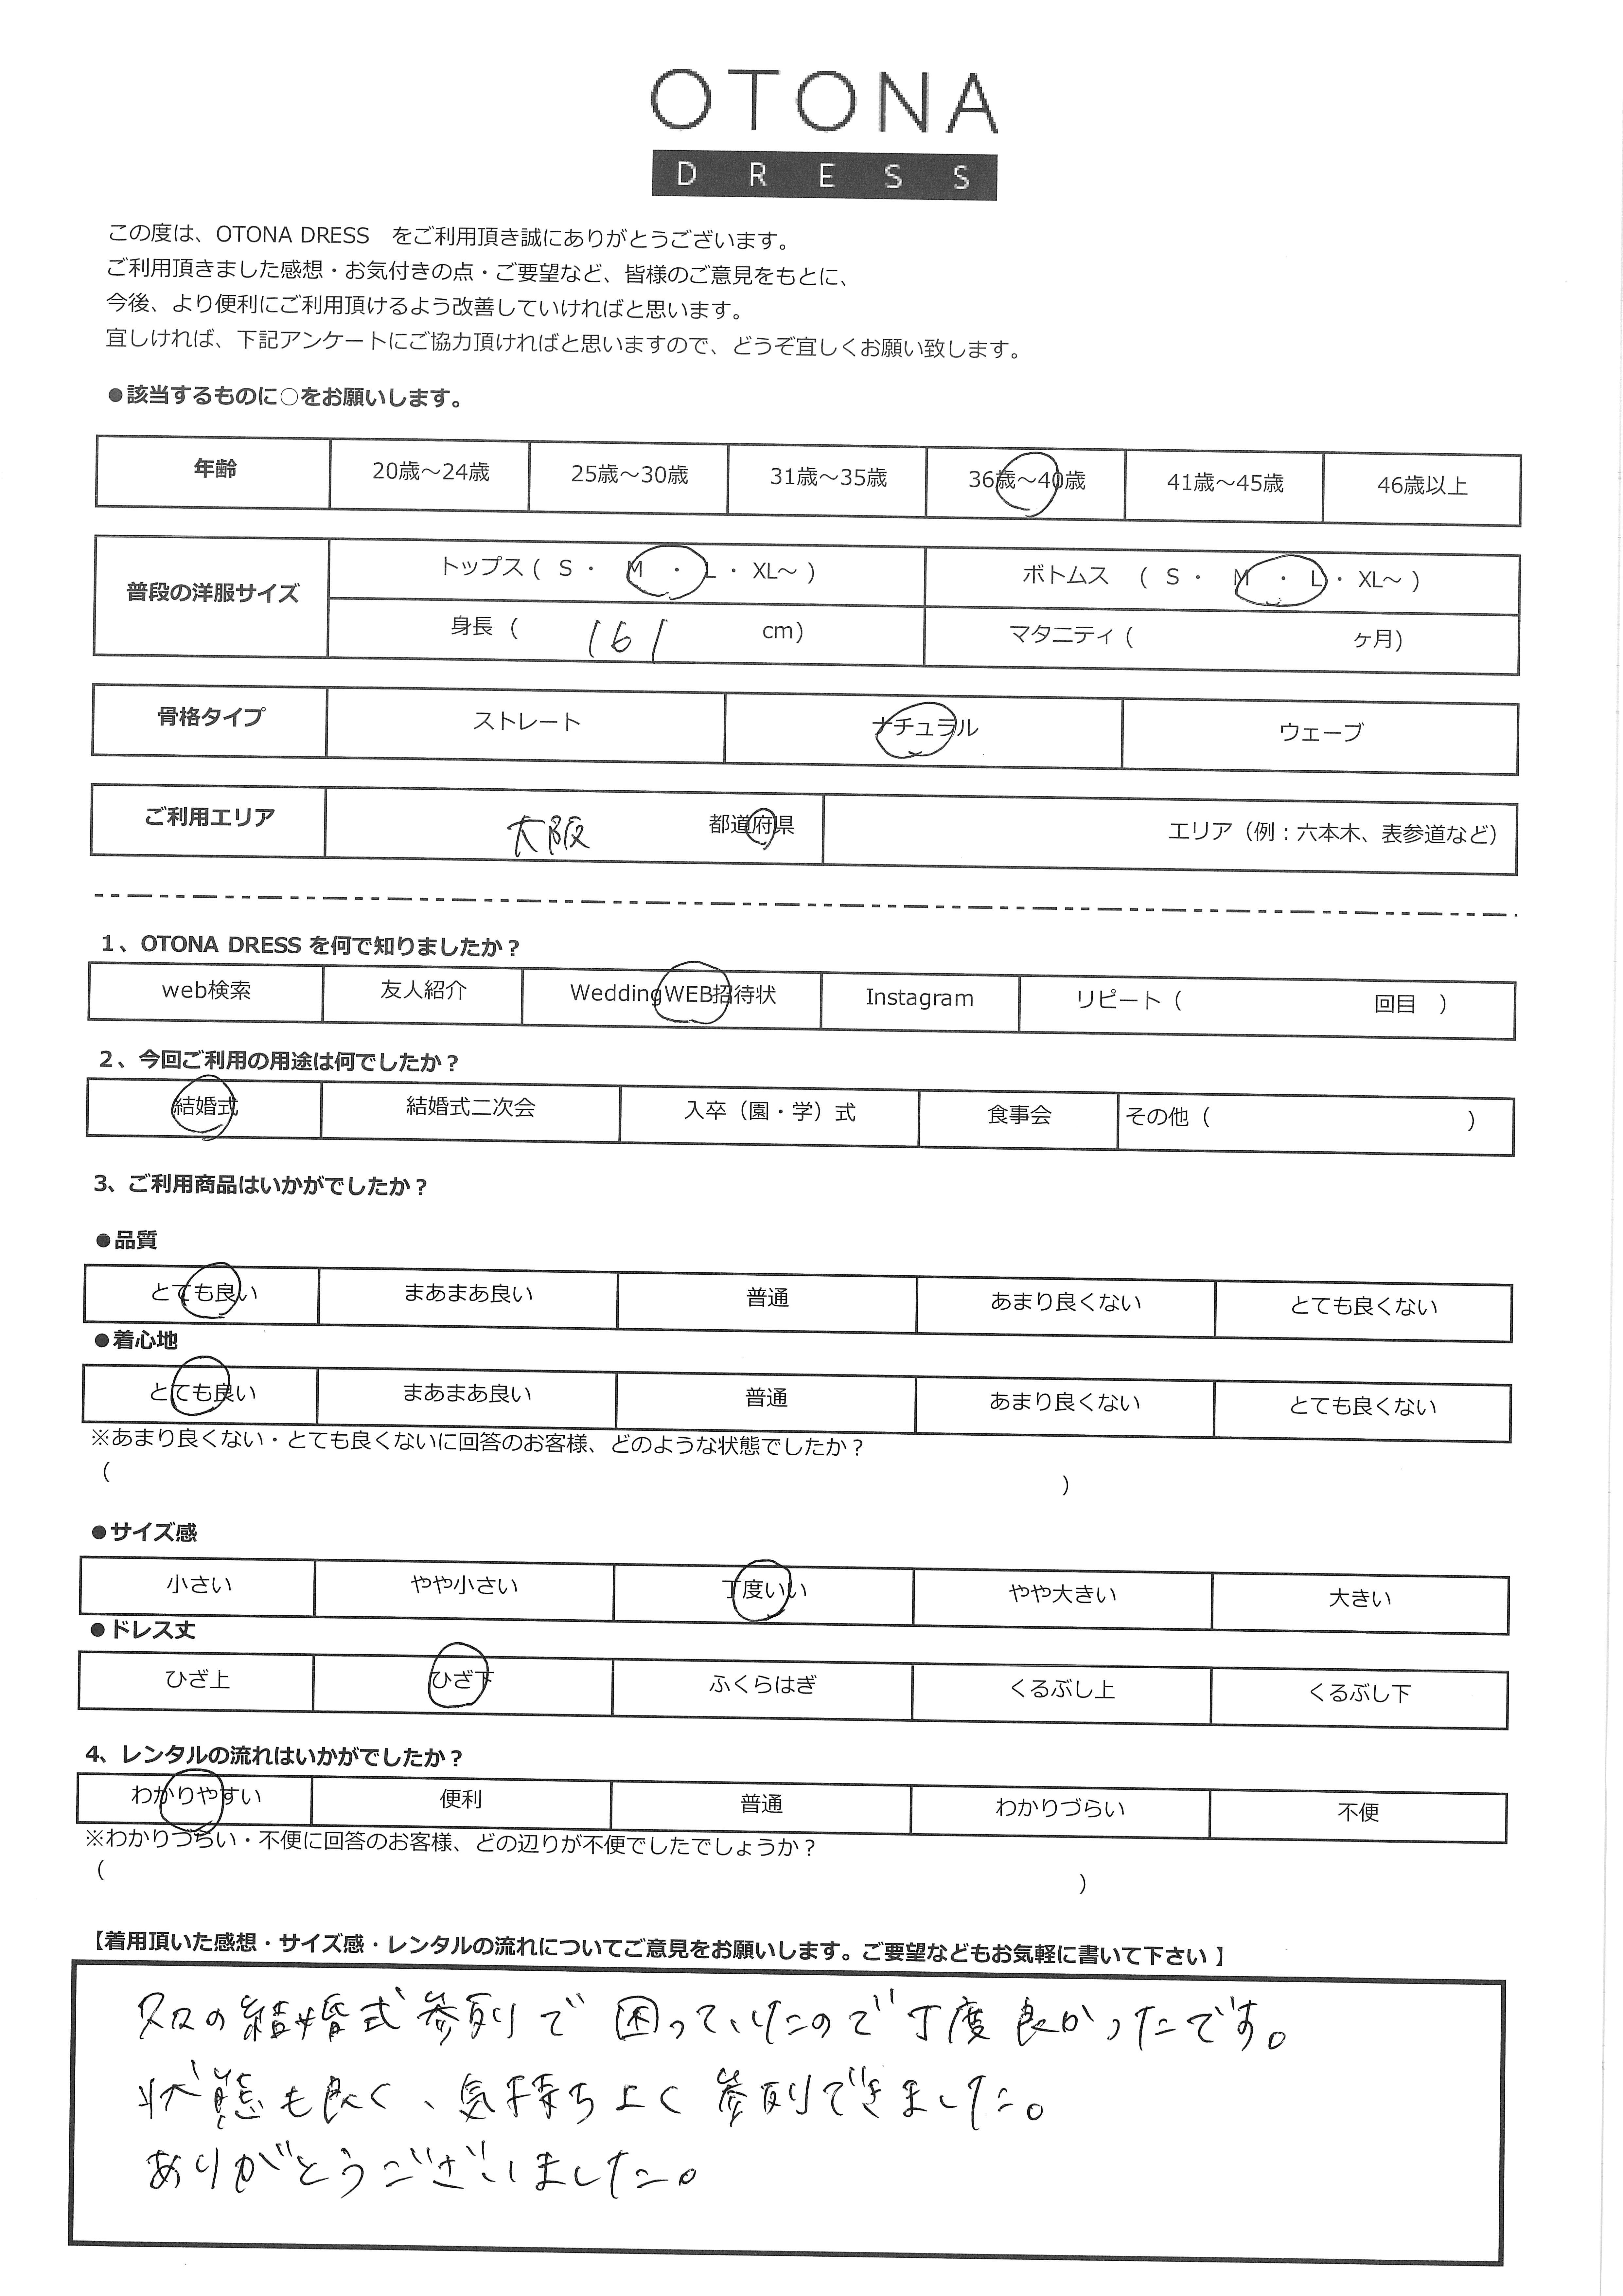 OTONA
DRESS
この度は、OTONA DRESS　をご利用頂き誠にありがとうございます。
ご利用頂きました感想・お気付きの点・ご要望など、皆様のご意見をもとに、
今後、より便利にご利用頂けるよう改善していければと思います。
宜しければ、下記アンケートにご協力頂ければと思いますので、どうぞ宜しくお願い致します。
●該当するものに○をお願いします。
年齢 20歳～24歳 25歳～30歳 31歳～35歳 36歳～40歳 41歳～45歳 46歳以上
普段の洋服サイズ トップス ( S ・ M ・ L ・ XL～ ) ボトムス ( S ・ M ・ L ・ XL～ )
身長 ( 161 cm) マタニティ ( ヶ月)
骨格タイプ ストレート ナチュラル ウェーブ
ご利用エリア 大阪 都道府県 エリア（例：六本木、表参道など）
1、OTONA DRESS を何で知りましたか？
web検索 友人紹介 WeddingWEB招待状 Instagram リピート（ 回目 ）
2、今回ご利用の用途は何でしたか？
結婚式 結婚式二次会 入卒（園・学）式 食事会 その他（ ）
3、ご利用商品はいかがでしたか？
●品質
とても良い まあまあ良い 普通 あまり良くない とても良くない
●着心地
とても良い まあまあ良い 普通 あまり良くない とても良くない
※あまり良くない・とても良くないに回答のお客様、どのような状態でしたか？
（ ）
●サイズ感
小さい やや小さい 丁度いい やや大きい 大きい
●ドレス丈
ひざ上 ひざ下 ふくらはぎ くるぶし上 くるぶし下
4、レンタルの流れはいかがでしたか？
わかりやすい 便利 普通 わかりづらい 不便
※わかりづらい・不便に回答のお客様、どの辺りが不便でしたでしょうか？
（ ）
【着用頂いた感想・サイズ感・レンタルの流れについてご意見をお願いします。ご要望などもお気軽に書いて下さい】
久々の結婚式参列で困っていたので丁度良かったです。
状態も良く、気持ちよく参列できました。
ありがとうございました。